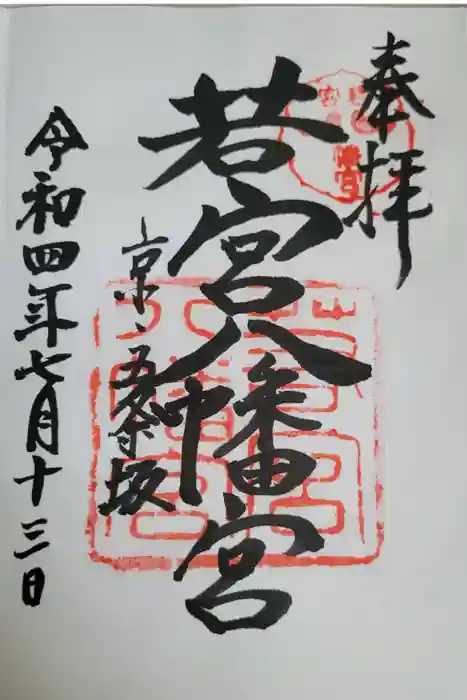 奉拝
若宮八幡宮
京、五条坂
令和四年七月十三日
若宮八幡宮